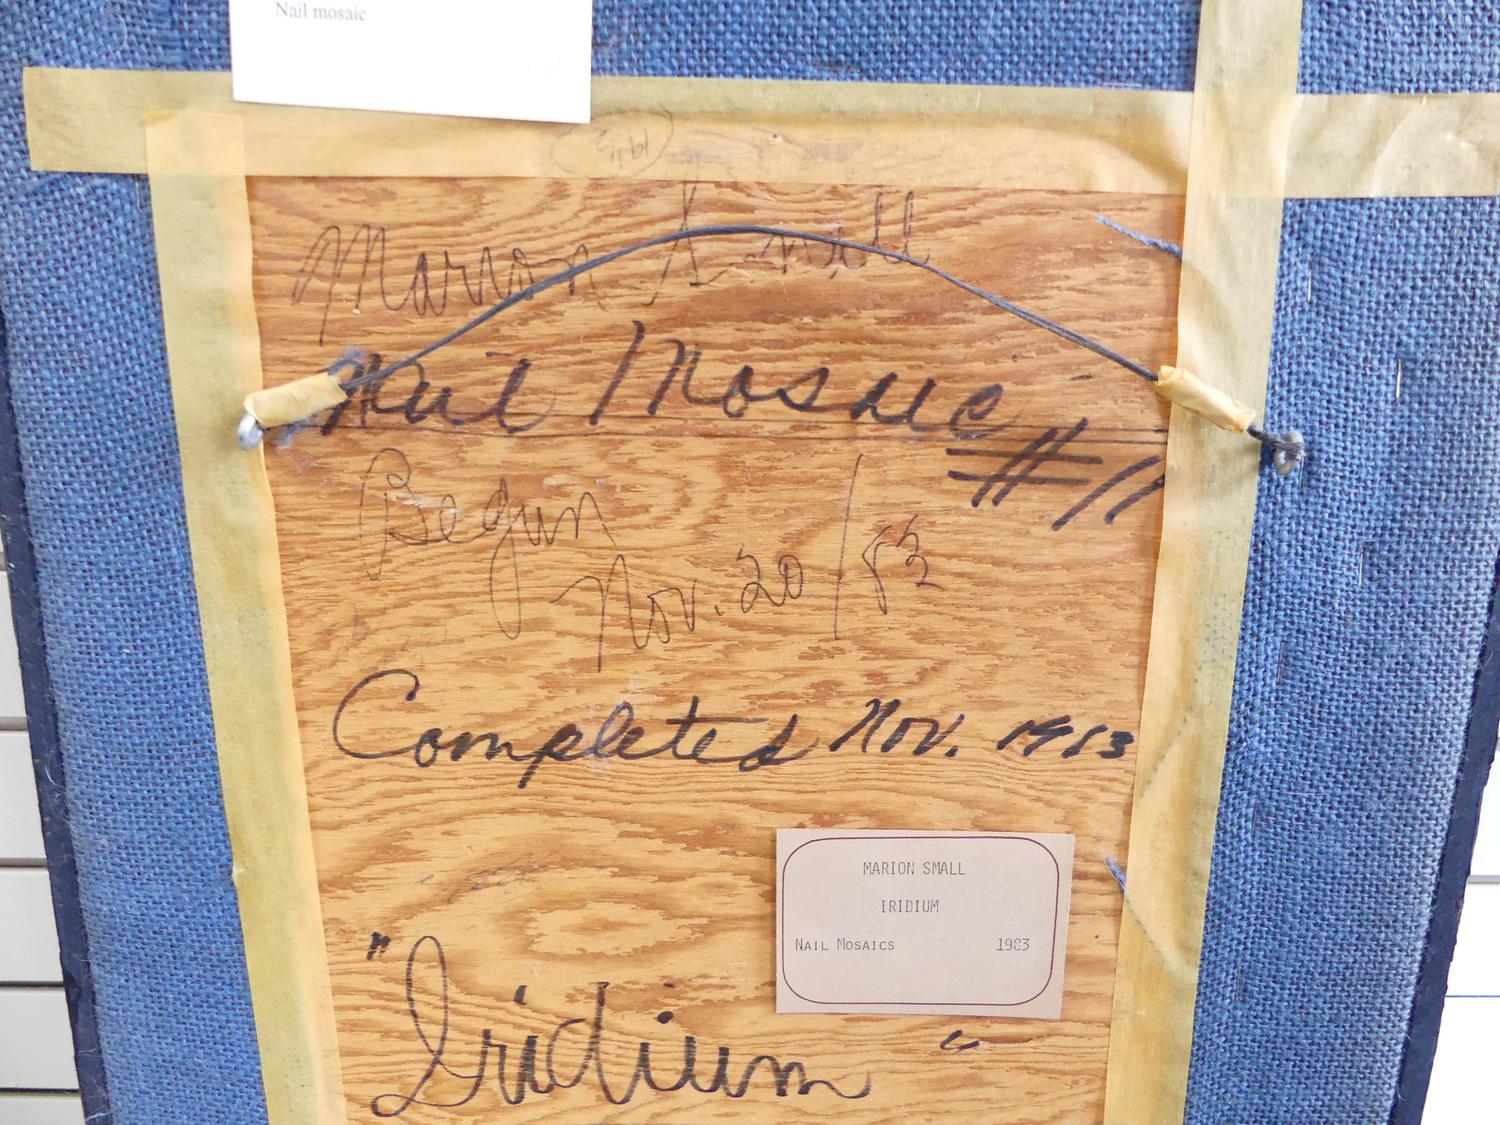 Nail mosaic
Marion Small
Nail Mosaic
#11
Begun
Nov. 20/83
Completed Nov. 1983
MARION SMALL
IRIDIUM
NAIL MOSAICS 1983
"Iridium"